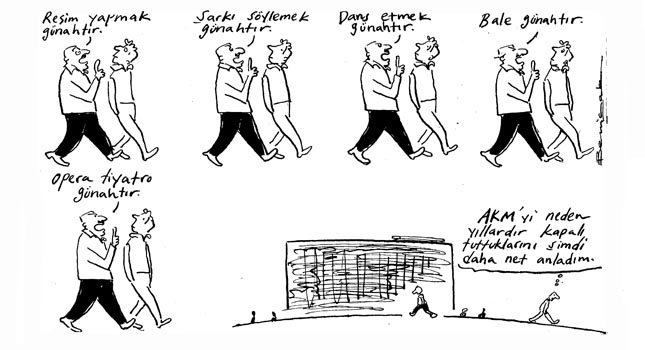 Resim yapmak
günahtır.
Şarkı söylemek
günahtır.
Dans etmek
günahtır.
Bale günahtır.
Opera tiyatro
günahtır.
AKM'yi neden
yıllardır kapalı
tuttuklarını şimdi
daha net anladım.